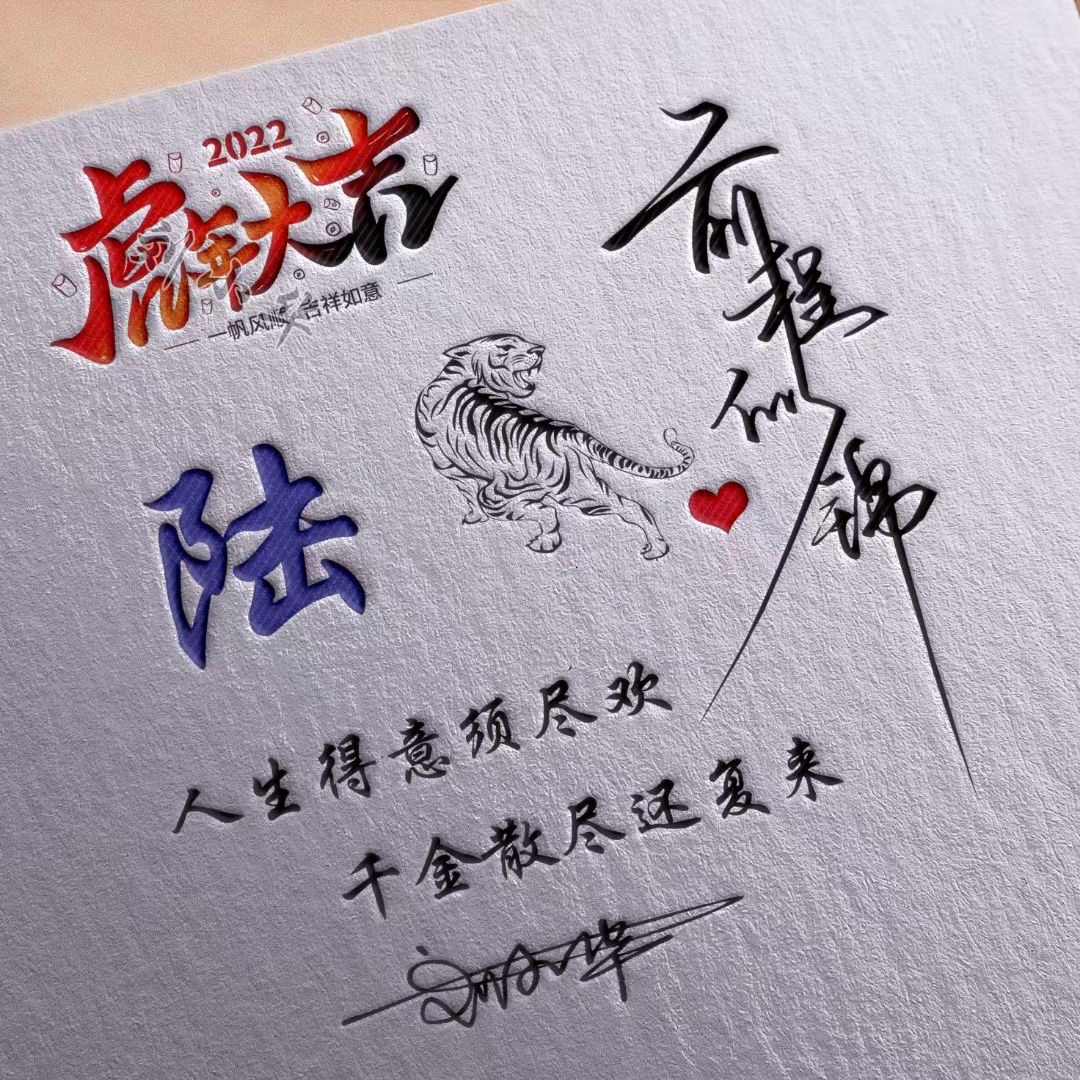 2022
虎年大吉
一帆风顺 吉祥如意
前程似锦
陆
人生得意须尽欢
千金散尽还复来